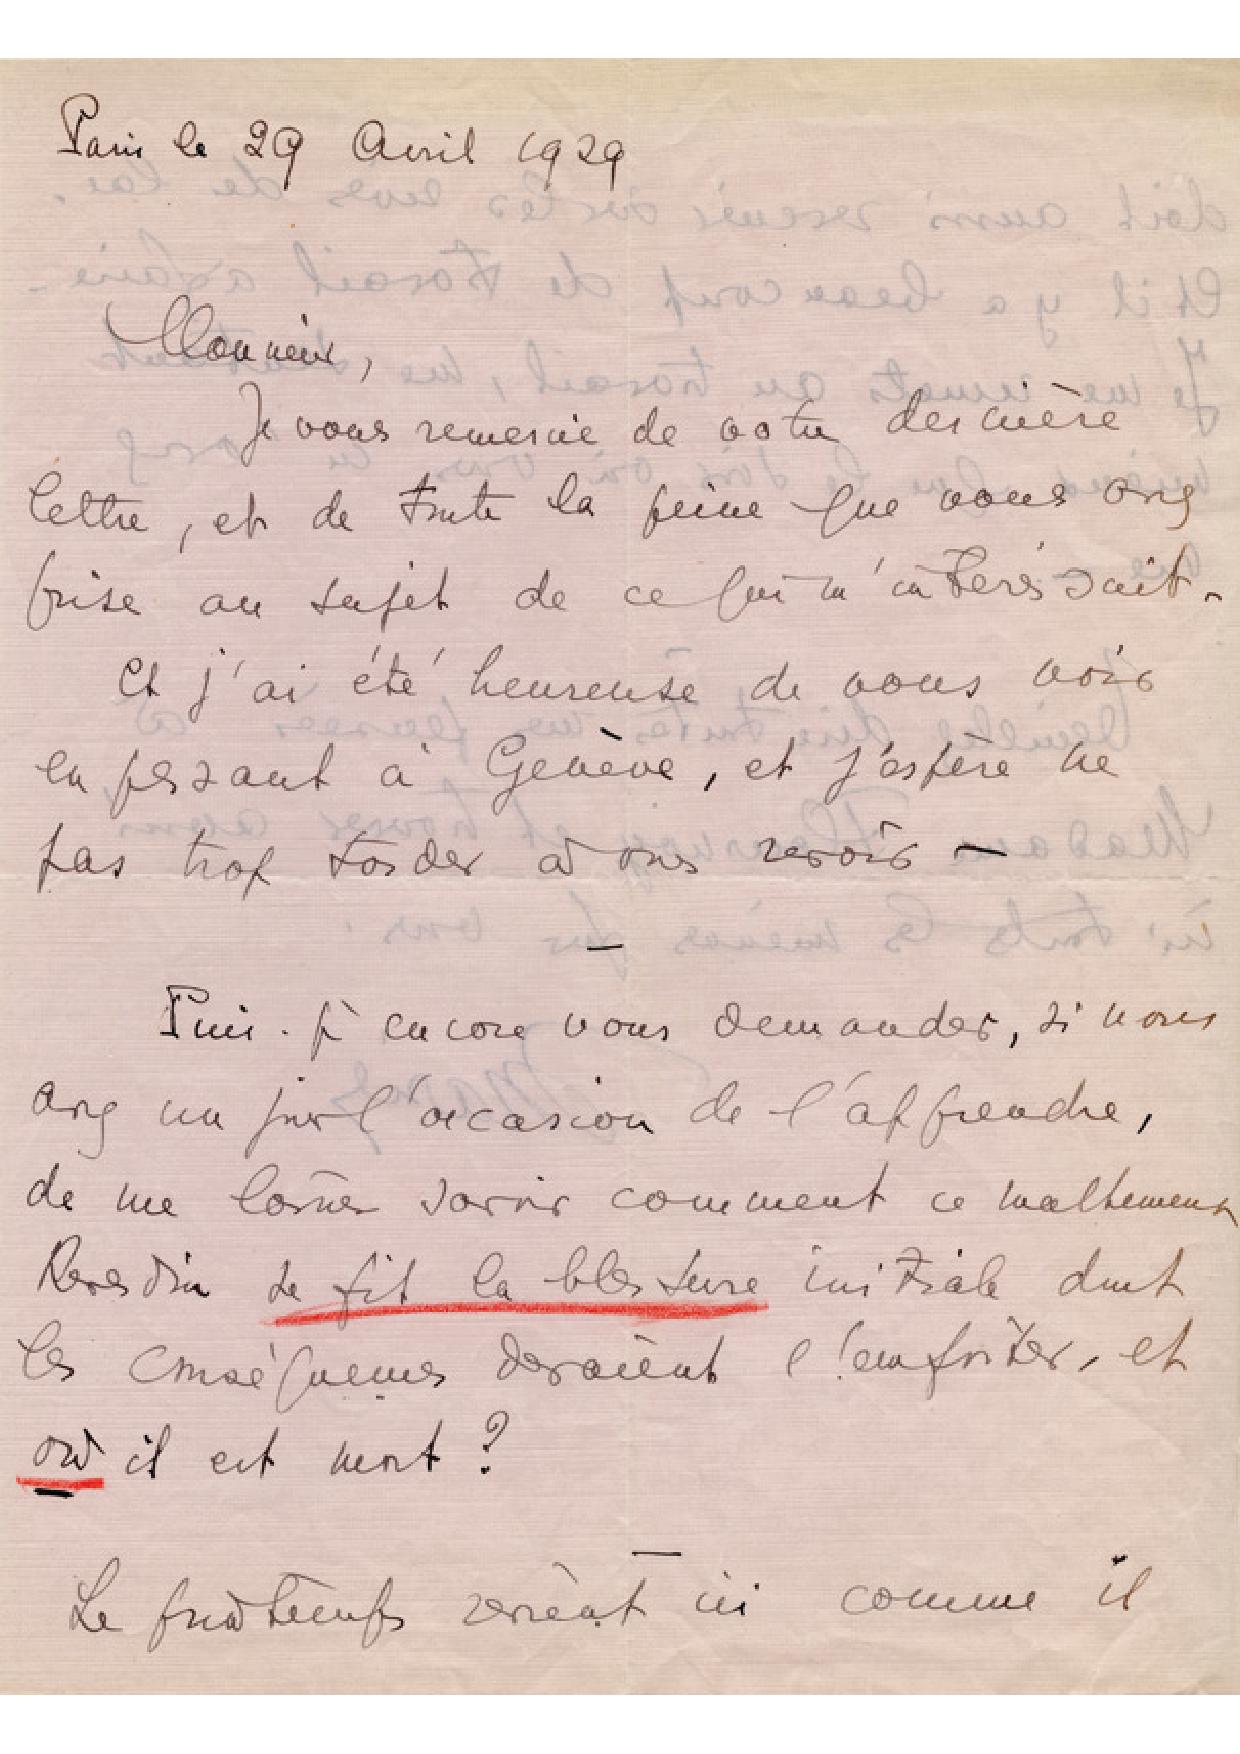 Paris le 29 Avril 1929
Monsieur,
Je vous remercie de votre dernière
lettre, et de toute la peine que vous avez
prise au sujet de ce qui m'intéressait.
Et j'ai été heureuse de vous voir
en passant à Genève, et j'espère ne
pas trop tarder à vous revoir —
—
Puis-je encore vous demander, si vous
avez un jour l'occasion de l'apprendre,
de me laisser savoir comment ce malheureux
Reverdin se fit la blessure initiale dont
les conséquences devaient l'emporter, et
où il est mort ?
—
Le printemps revient ici comme il